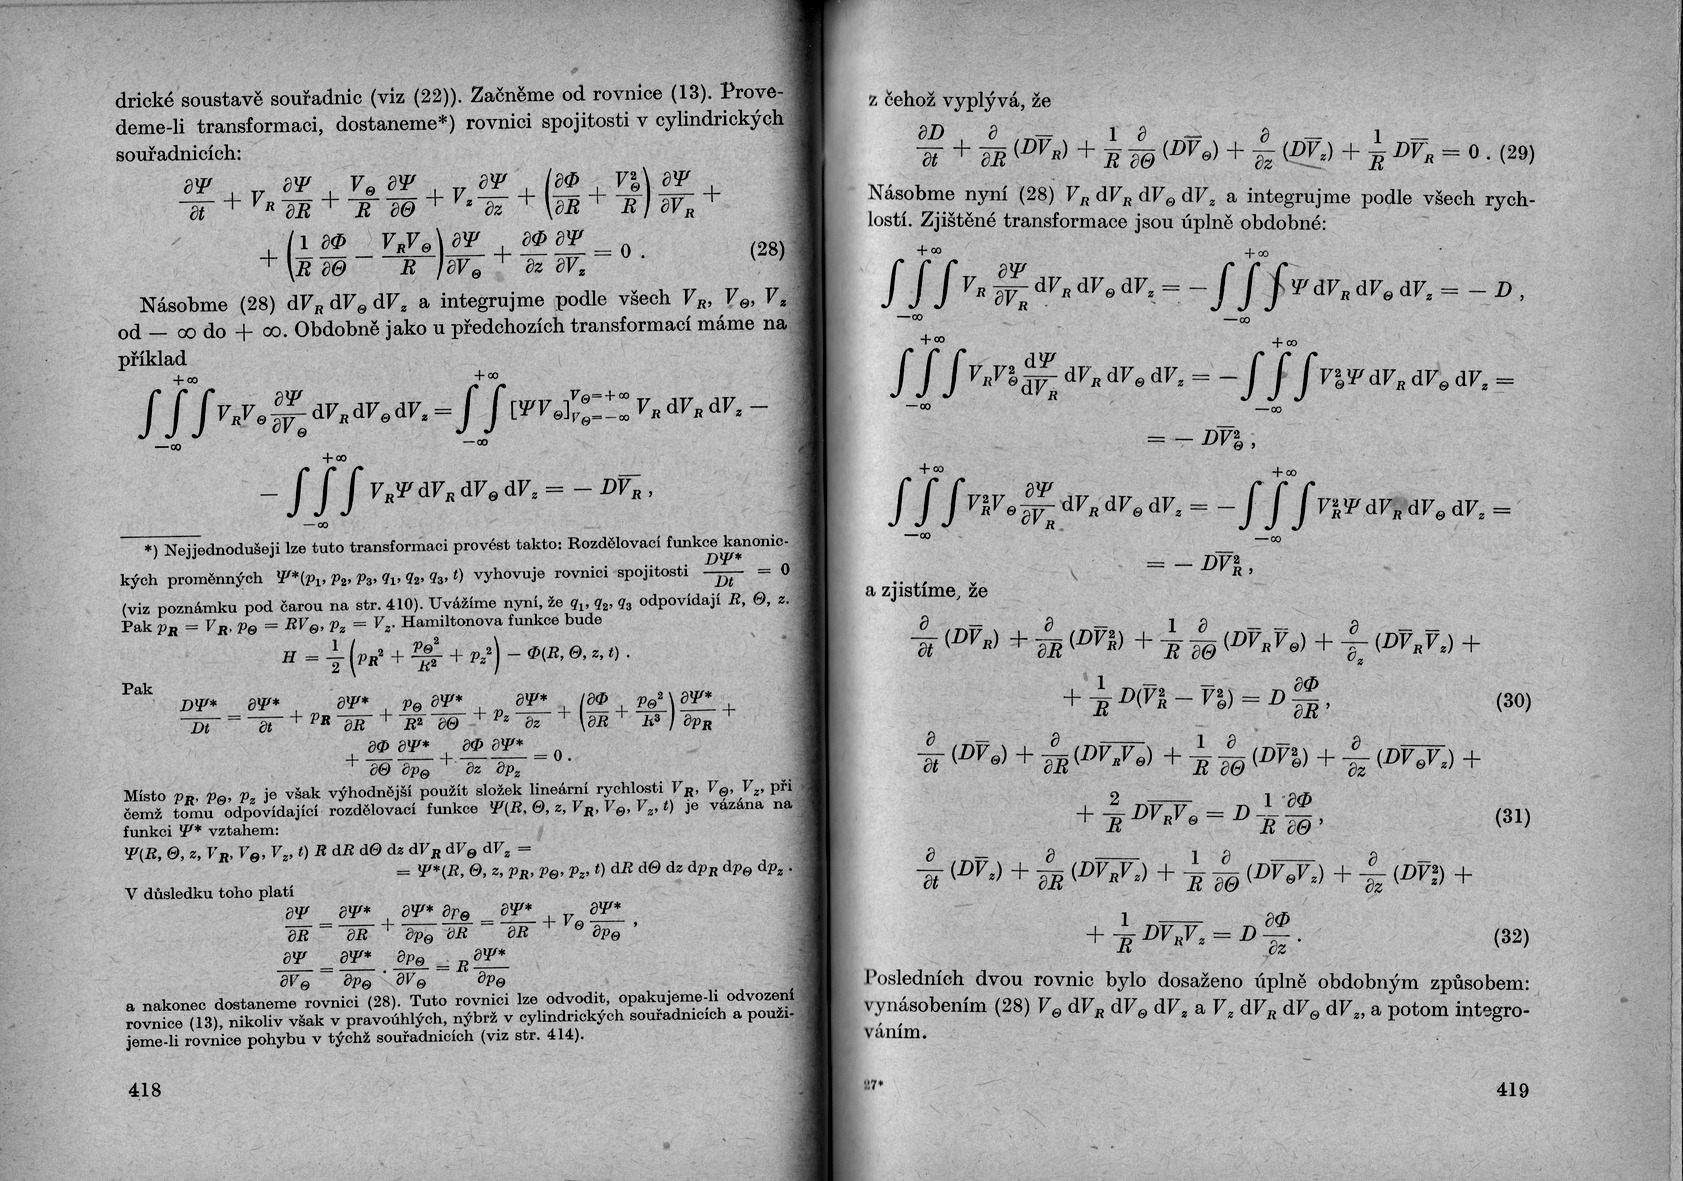 drické soustavě souřadnic (viz (22)). Začněme od rovnice (13). Prove-
deme-li transformaci, dostaneme*) rovnici spojitosti v cylindrických
souřadnicích:
∂Ψ/∂t + V_R ∂Ψ/∂R + V_Θ/R ∂Ψ/∂Θ + V_z ∂Ψ/∂z + (∂Φ/∂R + V_Θ²/R) ∂Ψ/∂V_R +
+ (1/R ∂Φ/∂Θ − V_R V_Θ/R) ∂Ψ/∂V_Θ + ∂Φ/∂z ∂Ψ/∂V_z = 0 . (28)
Násobme (28) dV_R dV_Θ dV_z a integrujme podle všech V_R, V_Θ, V_z
od — ∞ do + ∞. Obdobně jako u předchozích transformací máme na
příklad
∫∫∫_{−∞}^{+∞} V_R V_Θ ∂Ψ/∂V_Θ dV_R dV_Θ dV_z = ∫∫_{−∞}^{+∞} [ΨV_Θ]_{V_Θ=−∞}^{V_Θ=+∞} V_R dV_R dV_z −
− ∫∫∫_{−∞}^{+∞} V_R Ψ dV_R dV_Θ dV_z = − D V̅_R ,
*) Nejjednodušeji lze tuto transformaci provést takto: Rozdělovací funkce kanonic-
kých proměnných Ψ*(p₁, p₂, p₃, q₁, q₂, q₃, t) vyhovuje rovnici spojitosti DΨ*/Dt = 0
(viz poznámku pod čarou na str. 410). Uvážíme nyní, že q₁, q₂, q₃ odpovídají R, Θ, z.
Pak p_R = V_R, p_Θ = RV_Θ, p_z = V_z. Hamiltonova funkce bude
H = 1/2 (p_R² + p_Θ²/R² + p_z²) − Φ(R, Θ, z, t) .
Pak
DΨ*/Dt = ∂Ψ*/∂t + p_R ∂Ψ*/∂R + p_Θ/R² ∂Ψ*/∂Θ + p_z ∂Ψ*/∂z + (∂Φ/∂R + p_Θ²/R³) ∂Ψ*/∂p_R +
+ ∂Φ/∂Θ ∂Ψ*/∂p_Θ + ∂Φ/∂z ∂Ψ*/∂p_z = 0 .
Místo p_R, p_Θ, p_z je však výhodnější použít složek lineární rychlosti V_R, V_Θ, V_z, při
čemž tomu odpovídající rozdělovací funkce Ψ(R, Θ, z, V_R, V_Θ, V_z, t) je vázána na
funkci Ψ* vztahem:
Ψ(R, Θ, z, V_R, V_Θ, V_z, t) R dR dΘ dz dV_R dV_Θ dV_z =
= Ψ*(R, Θ, z, p_R, p_Θ, p_z, t) dR dΘ dz dp_R dp_Θ dp_z .
V důsledku toho platí
∂Ψ/∂R = ∂Ψ*/∂R + ∂Ψ*/∂p_Θ ∂p_Θ/∂R = ∂Ψ*/∂R + V_Θ ∂Ψ*/∂p_Θ ,
∂Ψ/∂V_Θ = ∂Ψ*/∂p_Θ . ∂p_Θ/∂V_Θ = R ∂Ψ*/∂p_Θ
a nakonec dostaneme rovnici (28). Tuto rovnici lze odvodit, opakujeme-li odvození
rovnice (13), nikoliv však v pravoúhlých, nýbrž v cylindrických souřadnicích a použi-
jeme-li rovnice pohybu v týchž souřadnicích (viz str. 414).
418
z čehož vyplývá, že
∂D/∂t + ∂/∂R (D V̅_R) + 1/R ∂/∂Θ (D V̅_Θ) + ∂/∂z (D V̅_z) + 1/R D V̅_R = 0 . (29)
Násobme nyní (28) V_R dV_R dV_Θ dV_z a integrujme podle všech rych-
lostí. Zjištěné transformace jsou úplně obdobné:
∫∫∫_{−∞}^{+∞} V_R ∂Ψ/∂V_R dV_R dV_Θ dV_z = − ∫∫∫_{−∞}^{+∞} Ψ dV_R dV_Θ dV_z = − D ,
∫∫∫_{−∞}^{+∞} V_R V_Θ² dΨ/dV_R dV_R dV_Θ dV_z = − ∫∫∫_{−∞}^{+∞} V_Θ² Ψ dV_R dV_Θ dV_z =
= − D V̅_Θ² ,
∫∫∫_{−∞}^{+∞} V_R² V_Θ ∂Ψ/∂V_R dV_R dV_Θ dV_z = − ∫∫∫_{−∞}^{+∞} V_R² Ψ dV_R dV_Θ dV_z =
= − D V̅_R² ,
a zjistíme, že
∂/∂t (D V̅_R) + ∂/∂R (D V̅_R²) + 1/R ∂/∂Θ (D V̅_R V̅_Θ) + ∂/∂_z (D V̅_R V̅_z) +
+ 1/R D(V̅_R² − V̅_Θ²) = D ∂Φ/∂R , (30)
∂/∂t (D V̅_Θ) + ∂/∂R (D V̅_R V̅_Θ) + 1/R ∂/∂Θ (D V̅_Θ²) + ∂/∂z (D V̅_Θ V̅_z) +
+ 2/R D V̅_R V̅_Θ = D 1/R ∂Φ/∂Θ , (31)
∂/∂t (D V̅_z) + ∂/∂R (D V̅_R V̅_z) + 1/R ∂/∂Θ (D V̅_Θ V̅_z) + ∂/∂z (D V̅_z²) +
+ 1/R D V̅_R V̅_z = D ∂Φ/∂z . (32)
Posledních dvou rovnic bylo dosaženo úplně obdobným způsobem:
vynásobením (28) V_Θ dV_R dV_Θ dV_z a V_z dV_R dV_Θ dV_z, a potom integro-
váním.
27*
419